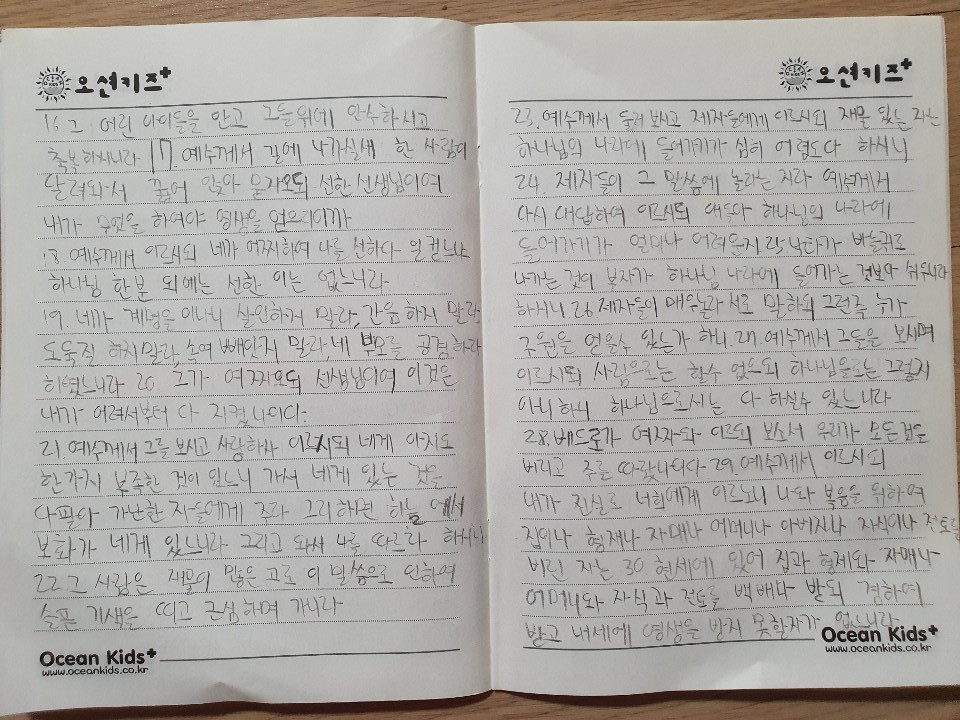 오션키즈+
16. 그 어린 아이들을 안고 그들위에 안수하시고
축복하시니라 17. 예수께서 길에 나가실새 한 사람이
달려와서 꿇어 앉아 묻자오되 선한 선생님이여
내가 무엇을 하여야 영생을 얻으리이까
18. 예수께서 이르시되 네가 어찌하여 나를 선하다 일컫느냐
하나님 한분 외에는 선한 이는 없느니라
19. 네가 계명을 아나니 살인하지 말라, 간음하지 말라,
도둑질 하지말라, 속여 빼앗지 말라, 네 부모를 공경하라
하였느니라 20. 그가 여짜오되 선생님이여 이것은
내가 어려서부터 다 지켰나이다.
21. 예수께서 그를 보시고 사랑하사 이르시되 네게 아직도
한가지 부족한 것이 있느니 가서 네게 있는 것을
다팔아 가난한 자들에게 주라 그리하면 하늘에서
보화가 네게 있느니라 그리고 와서 나를 따르라 하시니
22. 그 사람은 재물이 많은 고로 이 말씀으로 인하여
슬픈 기색을 띠고 근심하며 가니라
Ocean Kids+
www.oceankids.co.kr
오션키즈+
23. 예수께서 둘러 보시고 제자들에게 이르시되 재물 있는 자는
하나님의 나라에 들어가기가 심히 어렵도다 하시니
24. 제자들이 그 말씀에 놀라는 지라 예수께서
다시 대답하여 이르시되 얘들아 하나님의 나라에
들어가기가 얼마나 어려운지 25 낙타가 바늘귀로
나가는 것이 부자가 하나님 나라에 들어가는 것보다 쉬우니라
하시니 26. 제자들이 매우놀라 서로 말하되 그런즉 누가
구원을 얻을수 있는가 하니. 27. 예수께서 그들을 보시며
이르시되 사람으로는 할수 없으되 하나님으로는 그렇지
아니하니 하나님으로서는 다 하실수 있느니라
28. 베드로가 여짜와 이르되 보소서 우리가 모든것을
버리고 주를 따랐나이다 29. 예수께서 이르시되
내가 진실로 너희에게 이르노니 나와 복음을 위하여
집이나 형제나 자매나 어머니나 아버지나 자식이나 전토를
버린 자는 30 현세에 있어 집과 형제와 자매나
어머니와 자식과 전토를 백배나 받되 겸하여
받고 내세에 영생을 받지 못할자가 없느니라
Ocean Kids+
www.oceankids.co.kr